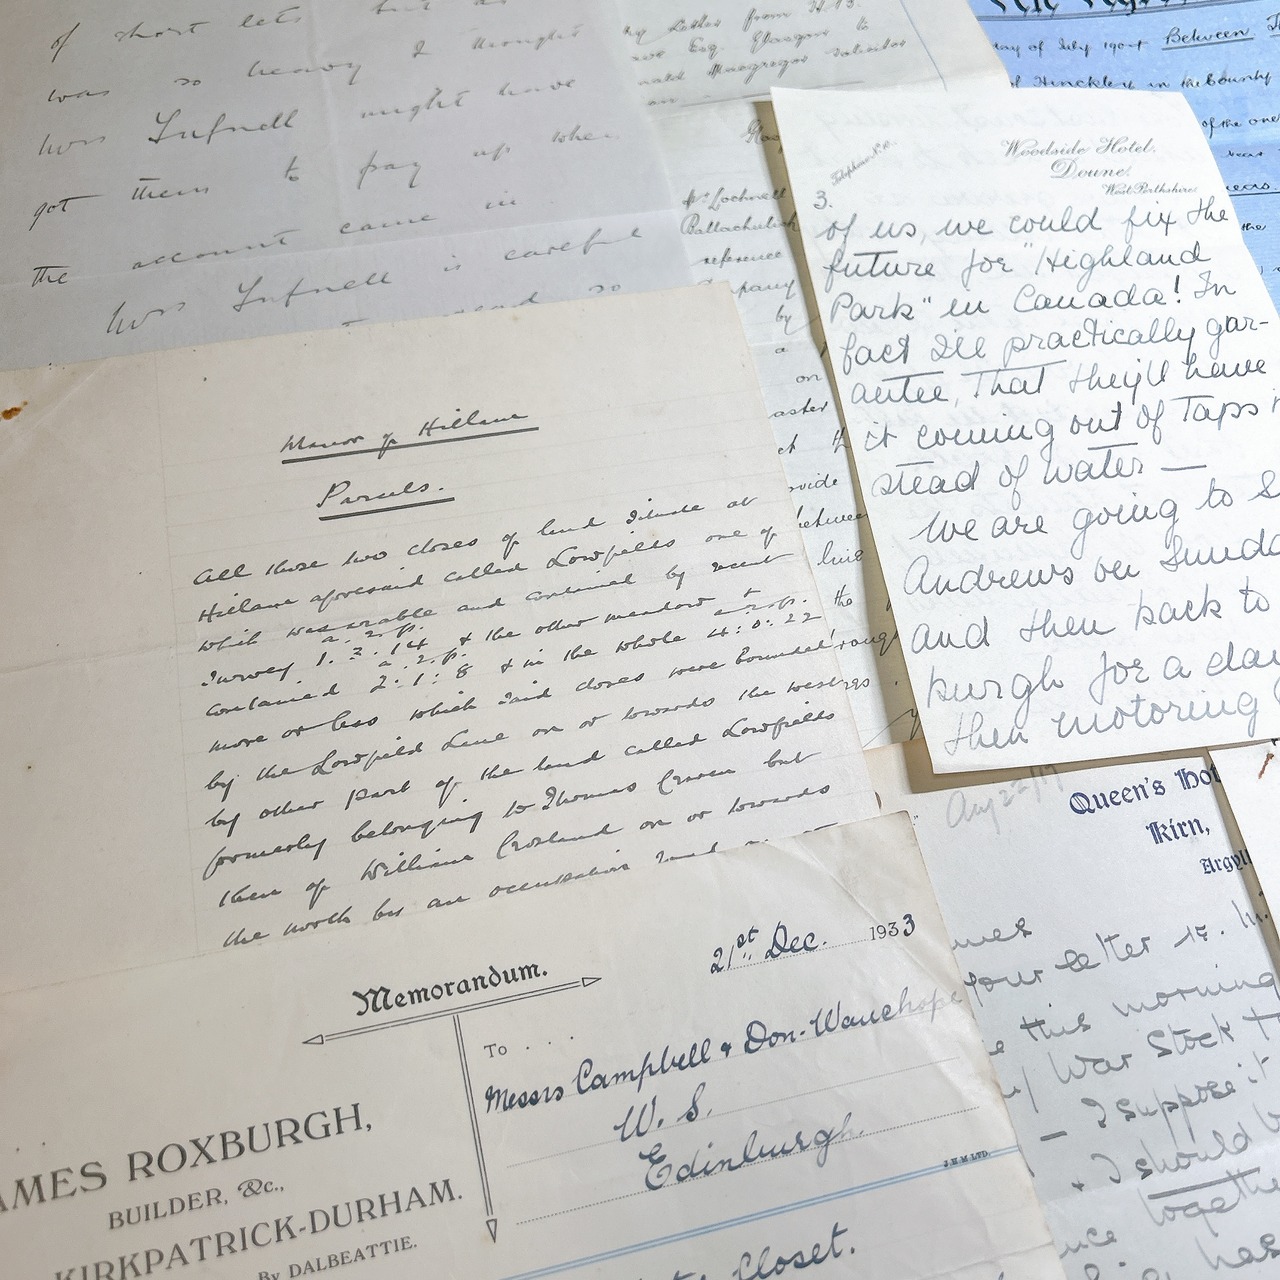 of short lets but as
was so heavy I thought
Mrs Tufnell might have
got them to pay up when
the account came in
Mrs Tufnell is careful
by Letter from
Esq. Glasgow to
Macgregor Solicitor
on
Lochnell
Ballachulish
reference
by
a
on
the
between
the
day of July 1904 Between
of Hinckley in the County
of the one
the
Telephone No 10.
Woodside Hotel,
Doune,
West Perthshire.
3.
of us, we could fix the
future for "Highland
Park" in Canada! In
fact I'll practically gar-
antee, That they'll have
it coming out of Taps
stead of water —
We are going to S
Andrews on Sunda
and then back to
burgh for a day
then motoring
Manor of Hillam
Parcels.
All those two closes of land situate at
Hillam aforesaid called Lowfields one of
which was arable and contained by recent
a. r. p.
survey 1. 3. 14 & the other meadow &
a. r. p. a. r. p.
contained 2: 1: 8 & in the whole 4: 0: 22
more or less which said closes were bounded
by the Lowfield Lane on or towards the west
by other part of the land called Lowfields
formerly belonging to Thomas Craven but
then of William Crosland on or towards
the north by an occupation road
Aug 22/17
Queen's Hot
Kirn,
Argyll
your letter
this morning
War Stock
— I suppose it
& I should
together
has
Memorandum.
21st Dec. 1933
To . . . .
Messrs Campbell & Don-Wauchope
W. S.
Edinburgh.
J.H.M LTD.
AMES ROXBURGH,
BUILDER, &c.,
KIRKPATRICK-DURHAM.
By DALBEATTIE.
Closet.